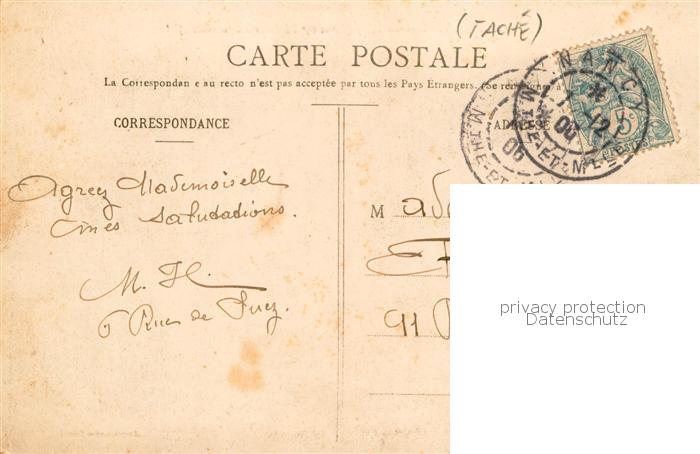 (TACHÉ)
CARTE POSTALE
La Correspondance au recto n'est pas acceptée par tous les Pays Etrangers. (Se renseigner à
CORRESPONDANCE
ADRESSE
NANCY
MTHE-ET-MLLE
05
Agreez Mademoiselle
mes Salutations.
M. H.
6 Rue de Suez.
M
91
privacy protection
Datenschutz